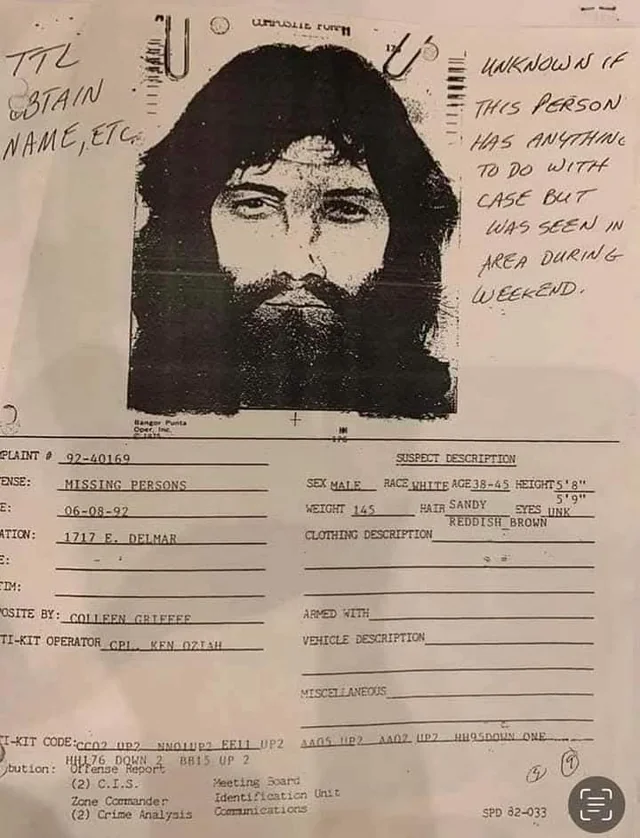 COMPOSITE FORM
TTL
OBTAIN
NAME, ETC
UNKNOWN IF
THIS PERSON
HAS ANYTHING
TO DO WITH
CASE BUT
WAS SEEN IN
AREA DURING
WEEKEND.
Bangor Punta
Oper, Inc.
© 1975
176
PLAINT # 92-40169
ENSE: MISSING PERSONS
E: 06-08-92
ATION: 1717 E. DELMAR
E:
TIM:
POSITE BY: COLLEEN
TI-KIT OPERATOR CPL. KEN OZIAH
SUSPECT DESCRIPTION
SEX MALE RACE WHITE AGE 38-45 HEIGHT 5'8"
5'9"
WEIGHT 145 HAIR SANDY EYES UNK
REDDISH BROWN
CLOTHING DESCRIPTION
ARMED WITH
VEHICLE DESCRIPTION
MISCELLANEOUS
TI-KIT CODE: CC02 UP2 NN01UP2 EE11 UP2 AA05 UP2 AA02 UP2 HH95DOWN ONE
HH176 DOWN 2 BB15 UP 2
bution: Offense Report
(2) C.I.S. Meeting Board
Zone Commander Identification Unit
(2) Crime Analysis Communications
SPD 82-033